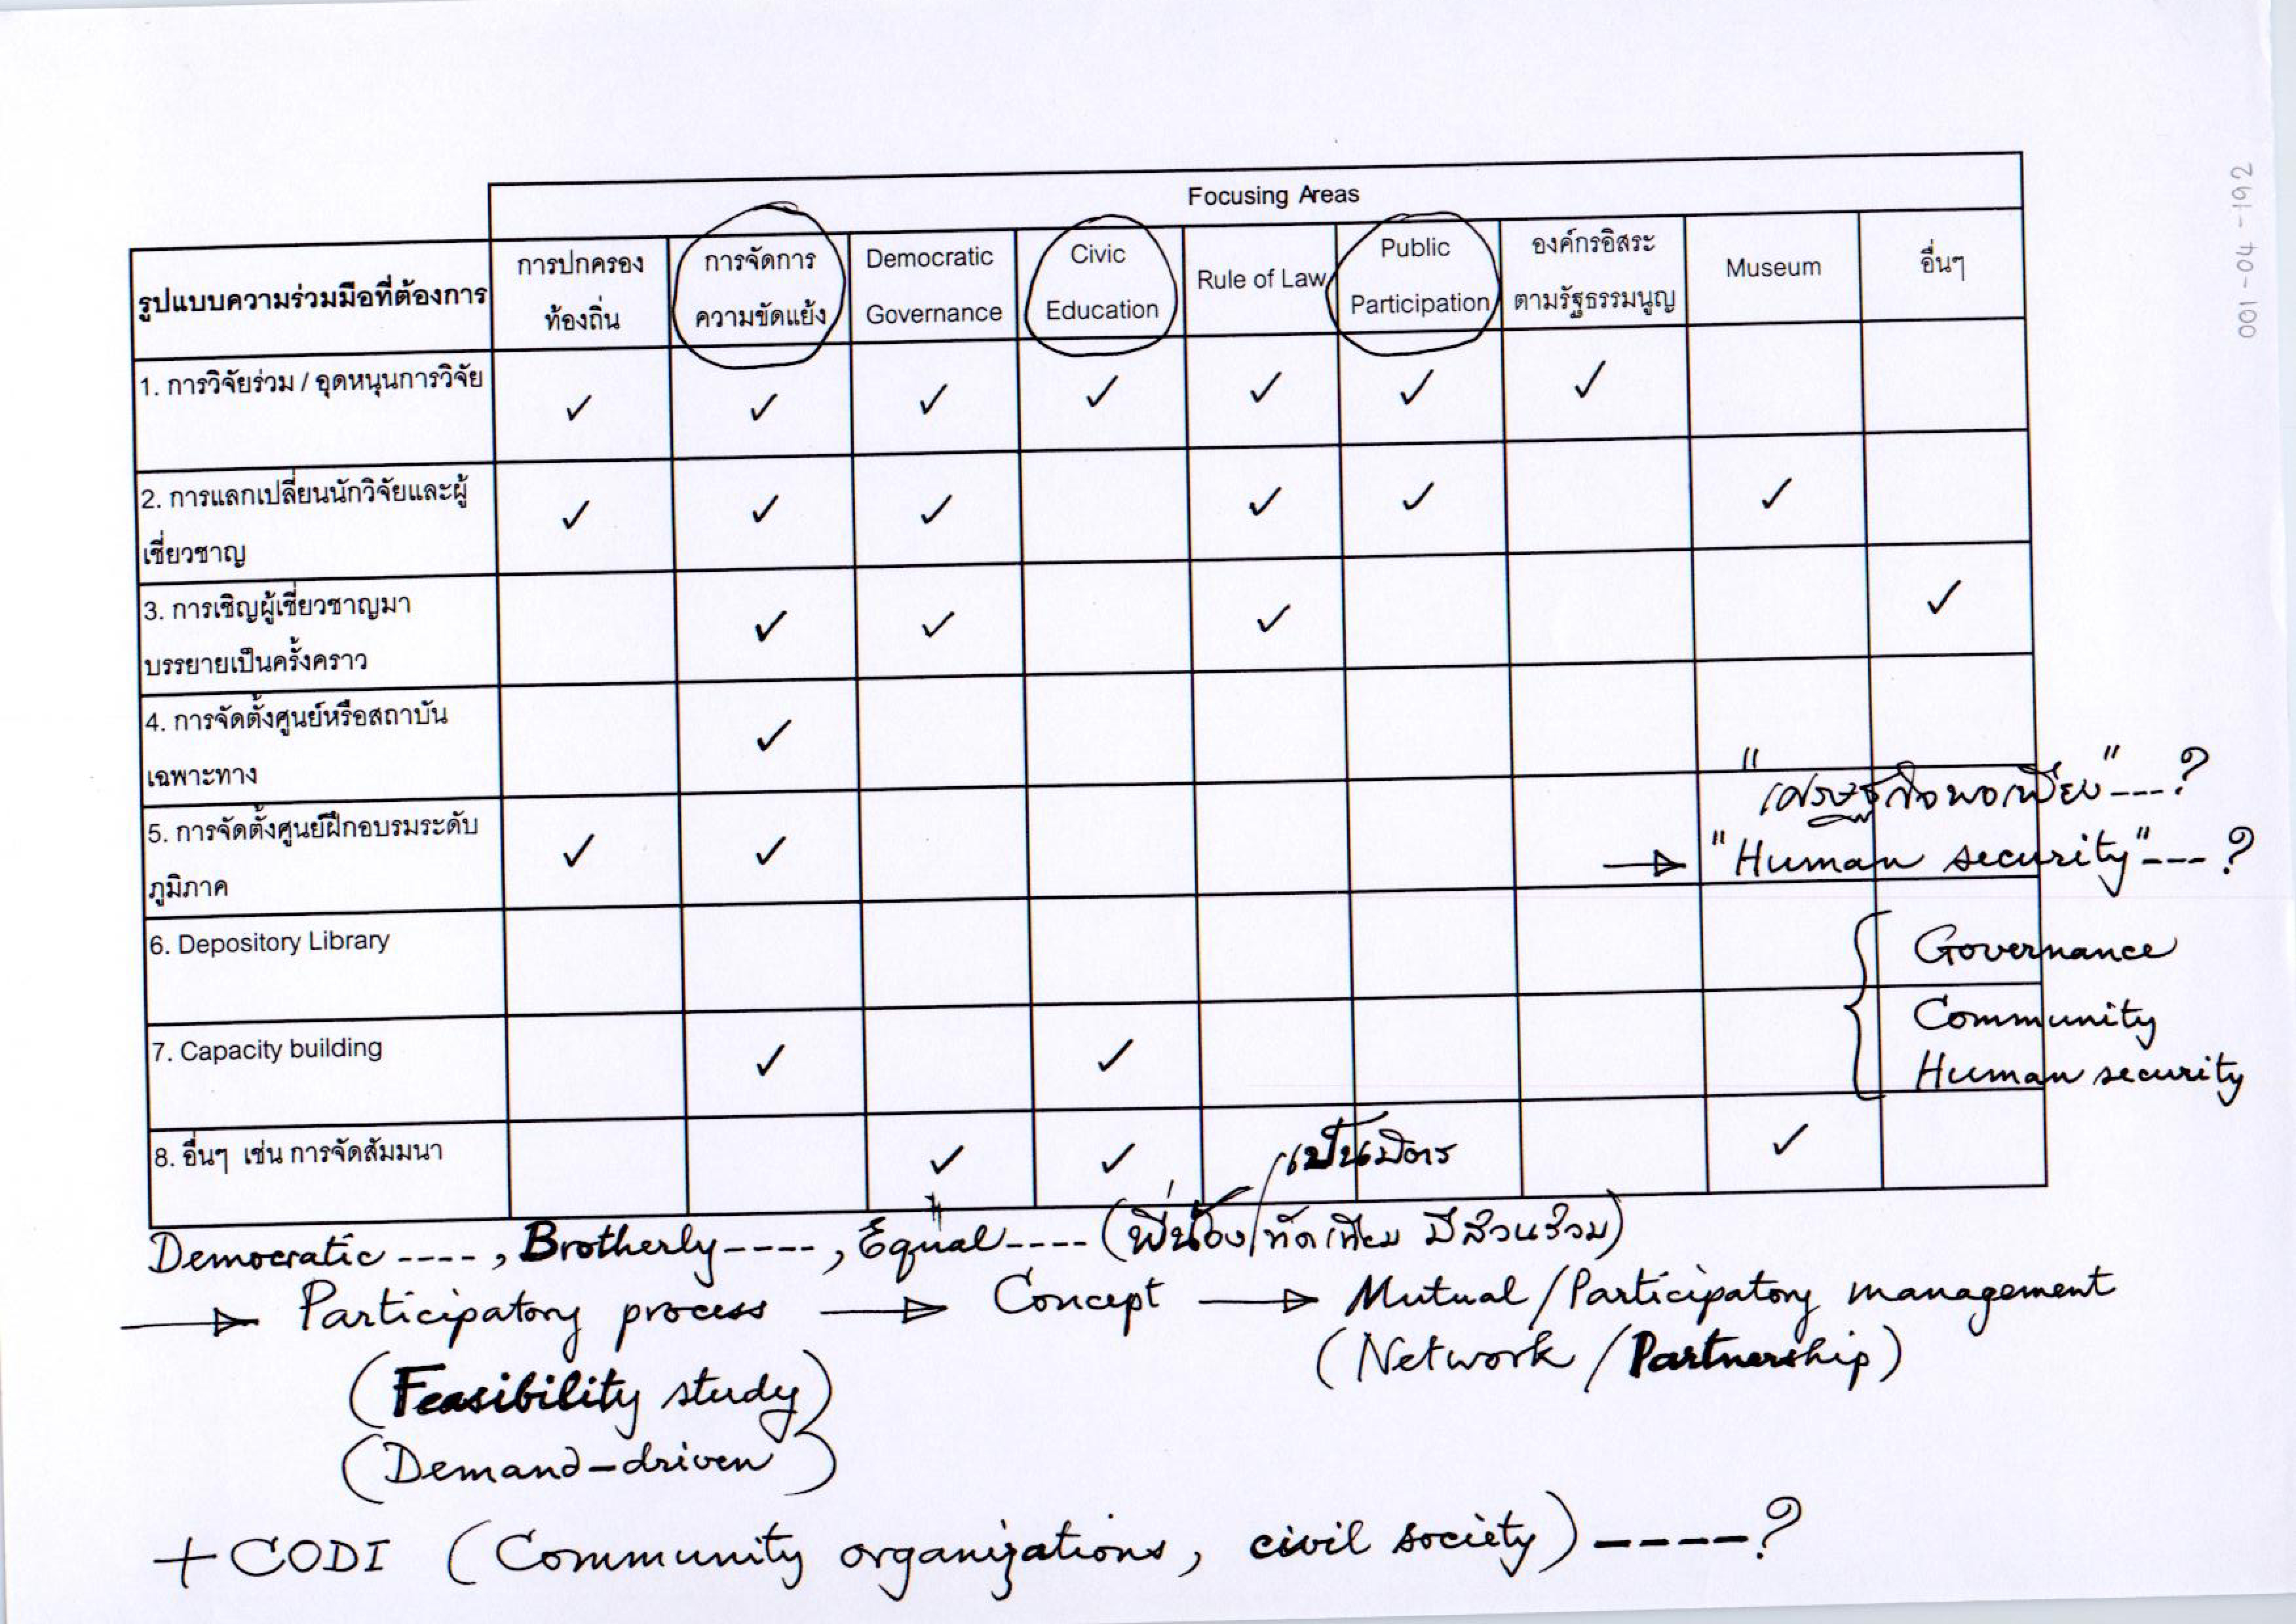 001-04-192
Focusing Areas
รูปแบบความร่วมมือที่ต้องการ
การปกครอง
ท้องถิ่น
การจัดการ
ความขัดแย้ง
Democratic
Governance
Civic
Education
Rule of Law
Public
Participation
องค์กรอิสระ
ตามรัฐธรรมนูญ
Museum
อื่นๆ
1. การวิจัยร่วม / อุดหนุนการวิจัย
✓ ✓ ✓ ✓ ✓ ✓ ✓
2. การแลกเปลี่ยนนักวิจัยและผู้
เชี่ยวชาญ
✓ ✓ ✓ ✓ ✓ ✓
3. การเชิญผู้เชี่ยวชาญมา
บรรยายเป็นครั้งคราว
✓ ✓ ✓ ✓
4. การจัดตั้งศูนย์หรือสถาบัน
เฉพาะทาง
✓
"เศรษฐกิจพอเพียง"---?
5. การจัดตั้งศูนย์ฝึกอบรมระดับ
ภูมิภาค
✓ ✓
→ "Human security"---?
6. Depository Library
Governance
Community
Human security
7. Capacity building
✓ ✓
8. อื่นๆ เช่น การจัดสัมมนา
✓ ✓ ✓
เป็นมิตร
Democratic ----, Brotherly----, Equal---- (พี่น้อง/ทัดเทียม มีส่วนร่วม)
→ Participatory process → Concept → Mutual/Participatory management
(Feasibility study) (Network/Partnership)
(Demand-driven)
+ CODI (Community organizations, civil society) ----?